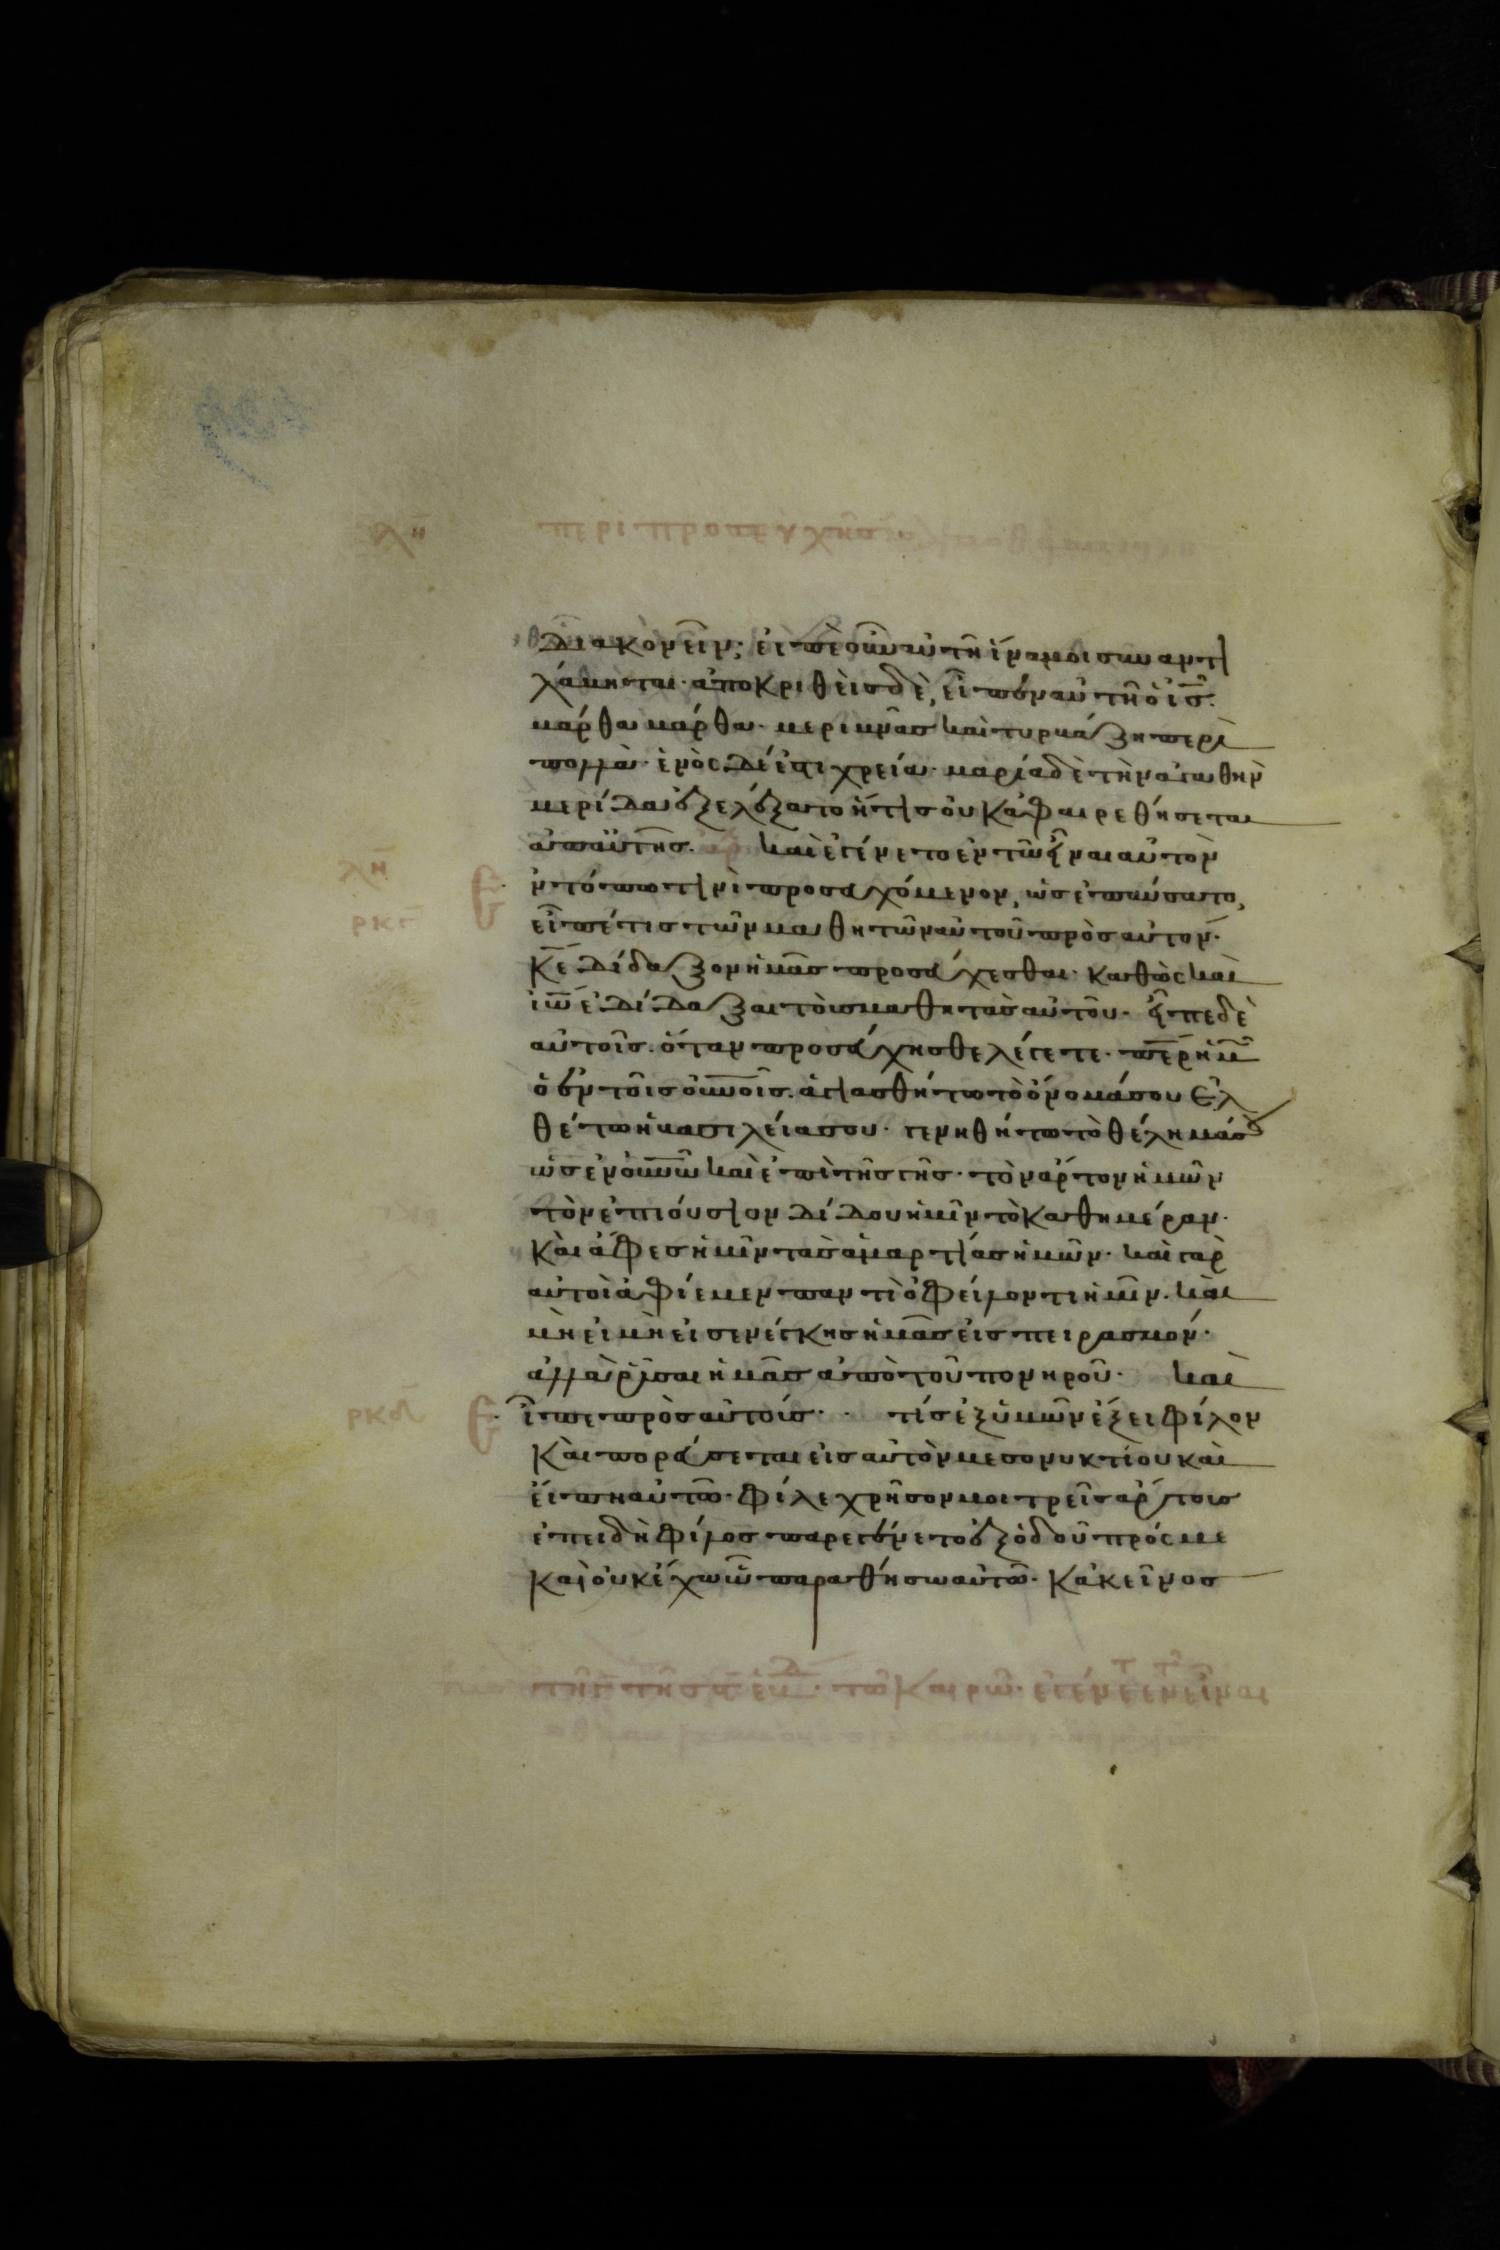 λη
διακονεῖν· εἰπὲ οὖν αὐτῆ ἵνα μοι συναντι
λάβηται· ἀποκριθεὶς δὲ, εἶπεν αὐτῆ ὁ ις̅·
μάρθα μάρθα· μεριμνᾶς καὶ τυρβάζη περὶ
πολλὰ· ἑνὸς δέ ἐστι χρεία· μαρία δὲ τὴν ἀγαθὴν
μερίδα ἐξελέξατο ἥτις οὐκ ἀφαιρεθήσεται
ἀπ' αὐτῆς· καὶ ἐγένετο ἐν τῶ εἶναι αὐτὸν
λη
ἐν τόπω τινὶ προσευχόμενον, ὡς ἐπαύσατο,
ρκϛ
εἶπέ τις τῶν μαθητῶν αὐτοῦ πρὸς αὐτόν·
κε̅ δίδαξον ἡμᾶς προσεύχεσθαι· καθὼς καὶ
ιω̅ ἐδίδαξε τοὺς μαθητὰς αὐτοῦ· εἶπε δὲ
αὐτοῖς· ὅταν προσεύχησθε λέγετε· περ̅ ἡμῶν
ὁ ἐν τοῖς οὐνοῖς· ἁγιασθήτω τὸ ὄνομά σου ἐλ
θέτω ἡ βασιλεία σου· γενηθήτω τὸ θέλημά σου
ὡς ἐν οὐνῶ καὶ ἐπὶ τῆς γῆς· τὸν ἄρτον ἡμῶν
τὸν ἐπιούσιον δίδου ἡμῖν τὸ καθημέραν·
καὶ ἄφες ἡμῖν τὰς ἁμαρτίας ἡμῶν· καὶ γὰρ
αὐτοὶ ἀφίεμεν παντὶ ὀφείλοντι ἡμῖν· καὶ
μὴ εἰ μὴ εἰσενέγκης ἡμᾶς εἰς πειρασμόν·
ἀλλὰ ῥῦσαι ἡμᾶς ἀπὸ τοῦ πονηροῦ· καὶ
ρκδ
εἶπε πρὸς αὐτούς· τίς ἐξ ὑμῶν ἕξει φίλον
καὶ πορεύσεται εἰς αὐτὸν μεσονυκτίου καὶ
εἴπη αὐτῶ· φίλε χρῆσον μοι τρεῖς ἄρτους
ἐπειδὴ φίλος παρεγένετο ἐξ ὁδοῦ πρός με
καὶ οὐκ ἔχω ὃ παραθήσω αὐτῶ· κἀκεῖνος